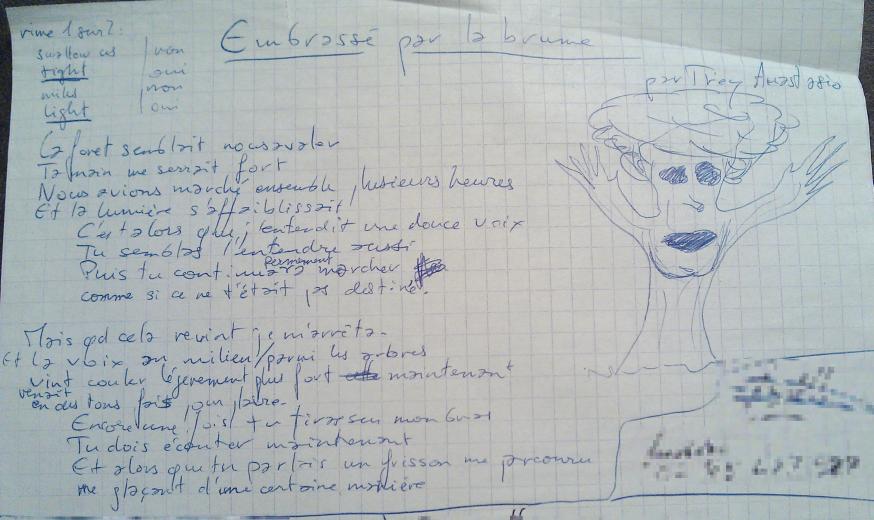 rime 1 sur 2:
swallow us non
tight oui
miles non
light oui
Embrassé par la brume
par Trey Anastasio
La foret semblait nous avaler
Ta main me serrait fort
Nous avions marché ensemble plusieurs heures
Et la lumière s'affaiblissait
C'est alors que j'entendit une douce voix
Tu semblas l'entendre aussi
fermement
Puis tu continuas marcher
comme si ce ne t'était pas destiné.
Mais qd cela revint je m'arrêta.
Et la voix au milieu/parmi les arbres
vint couler légerement plus fort maintenant
venait
en des tons faits pour plaire.
Encore une fois tu tiras sur mon bras
Tu dois écouter maintenant
Et alors que tu parlais un frisson me parcouru
me glaçant d'une certaine manière